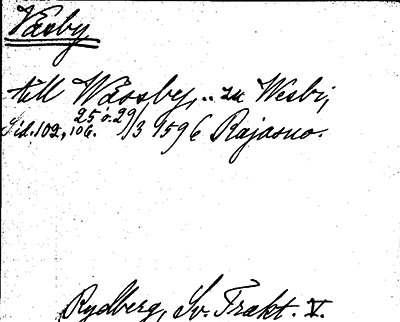 Väsby
till Wässby, .. zu Wesbi,
Sid. 102, 106. 25 o. 29/3 1596 Rajasuo.
Rydberg, Sv. Trakt. V.